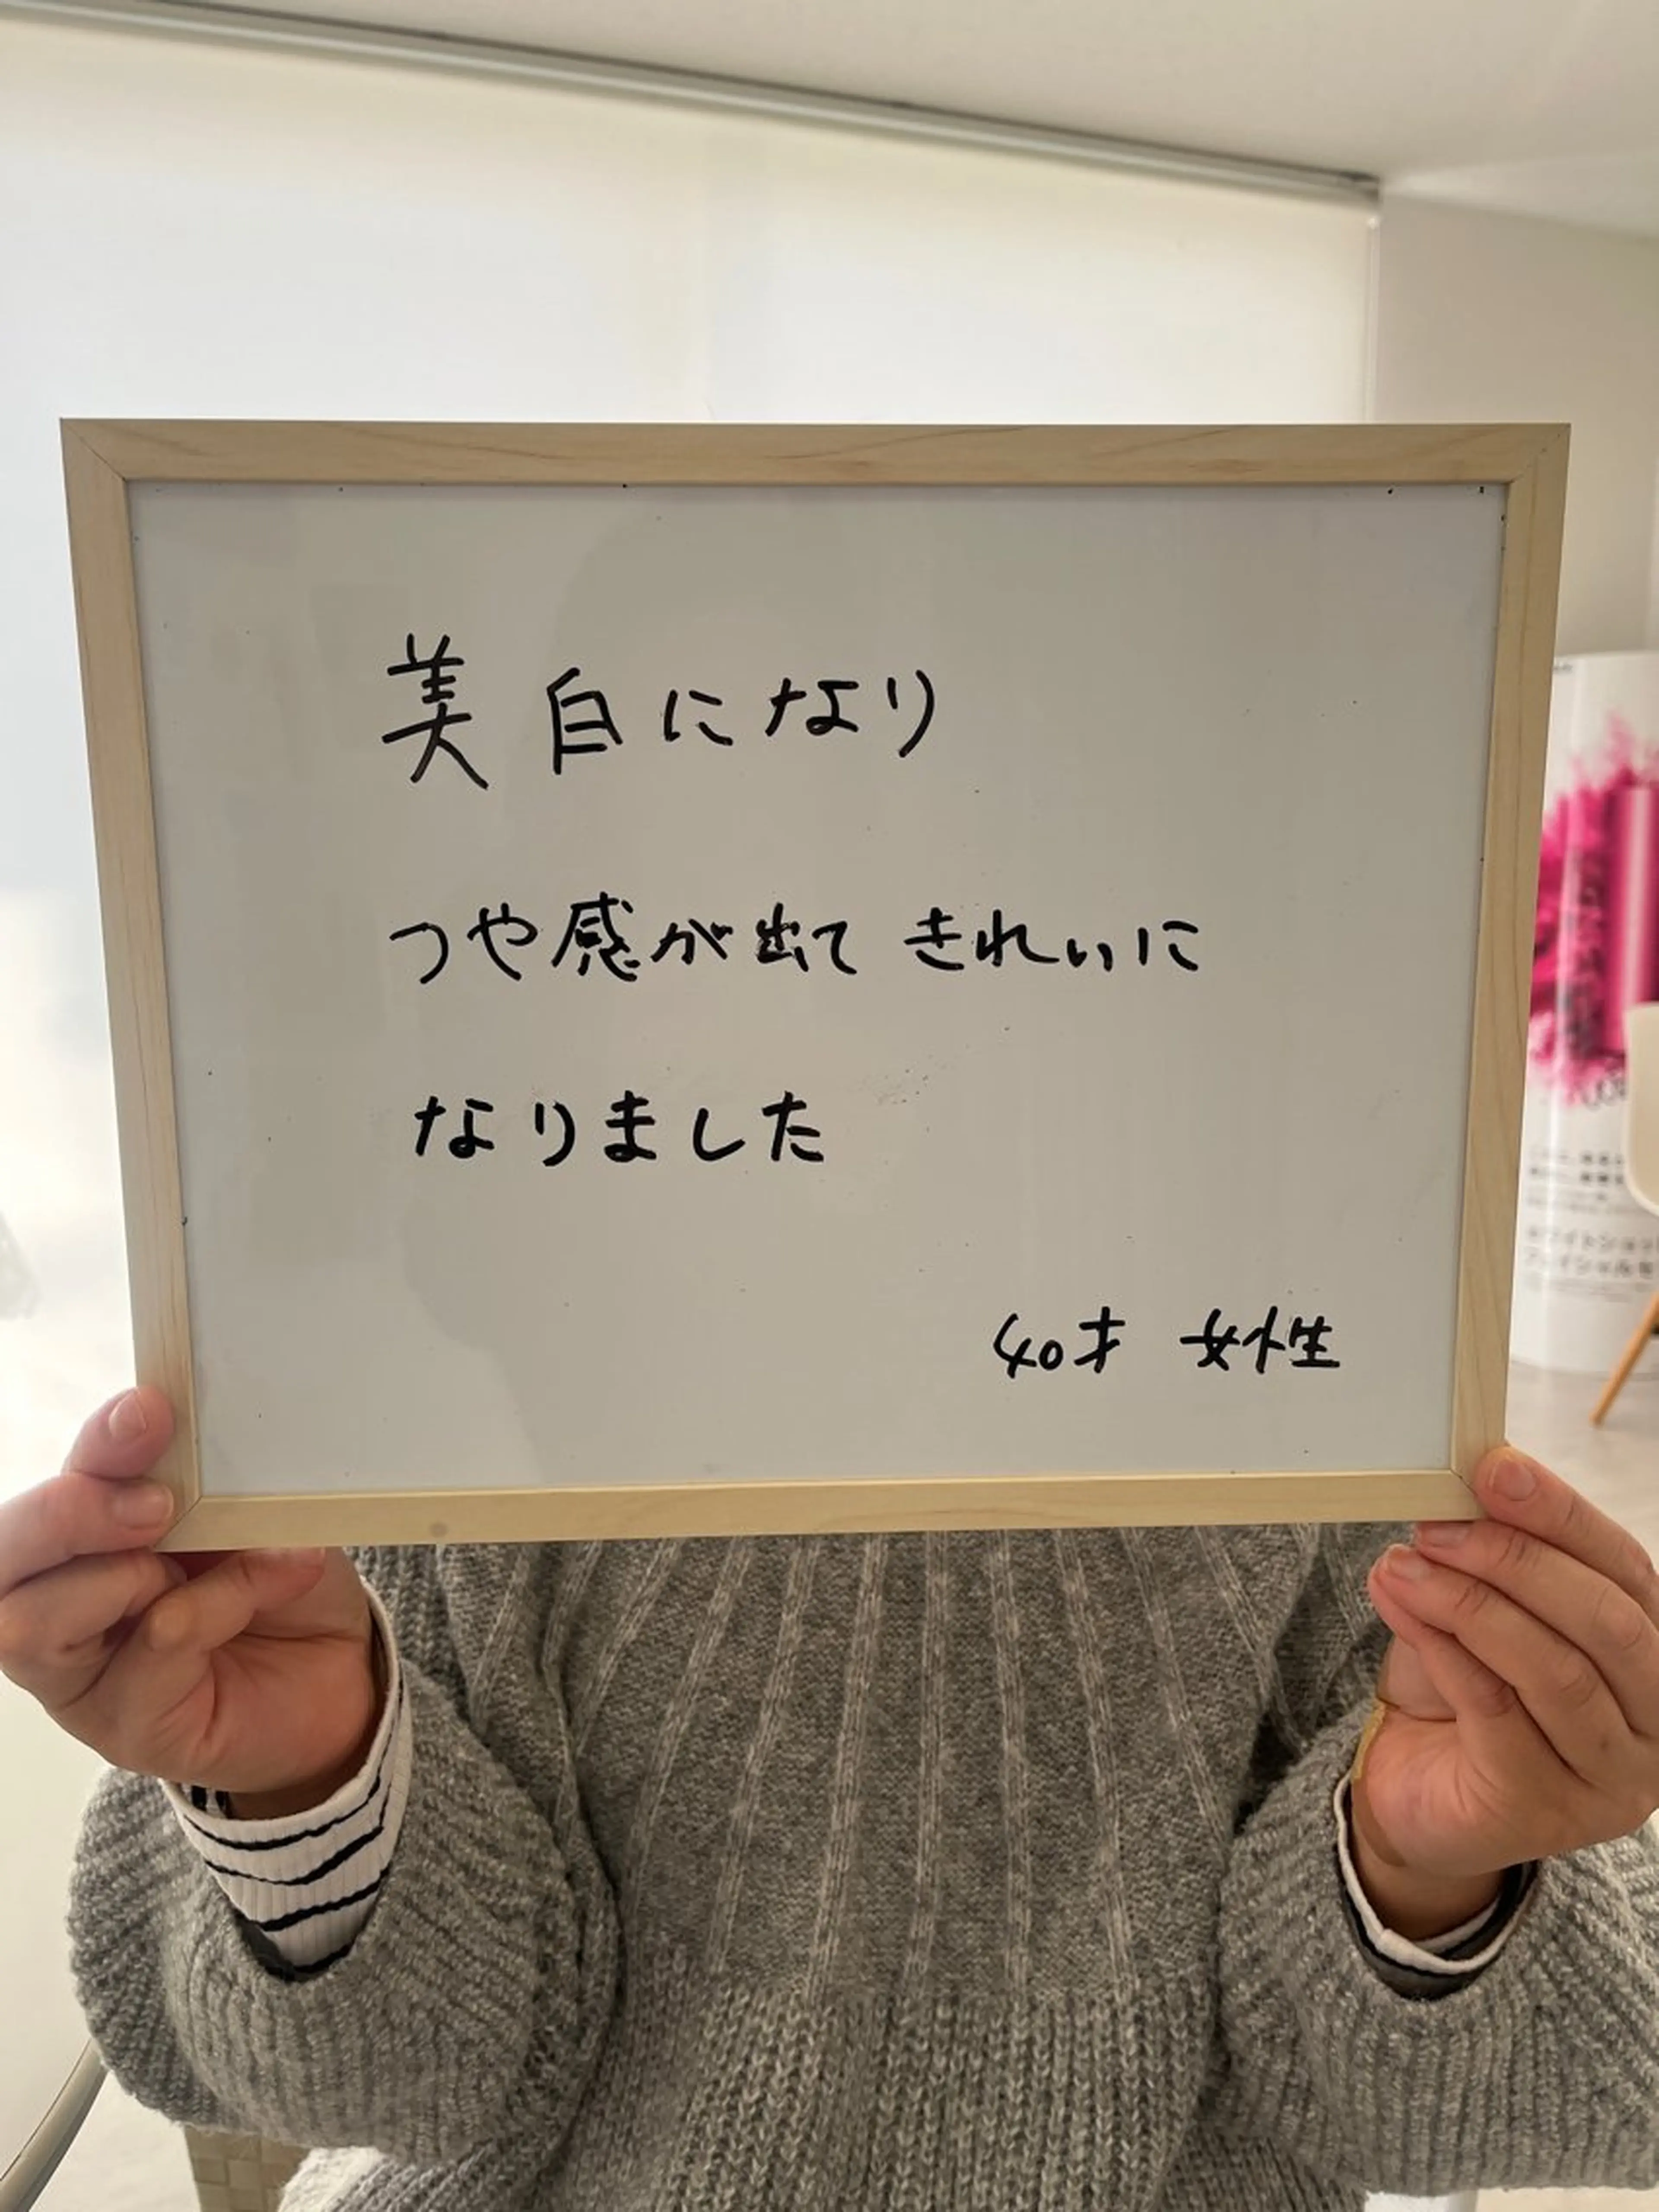 美白になり
つや感が出て きれいに
なりました
40才 女性